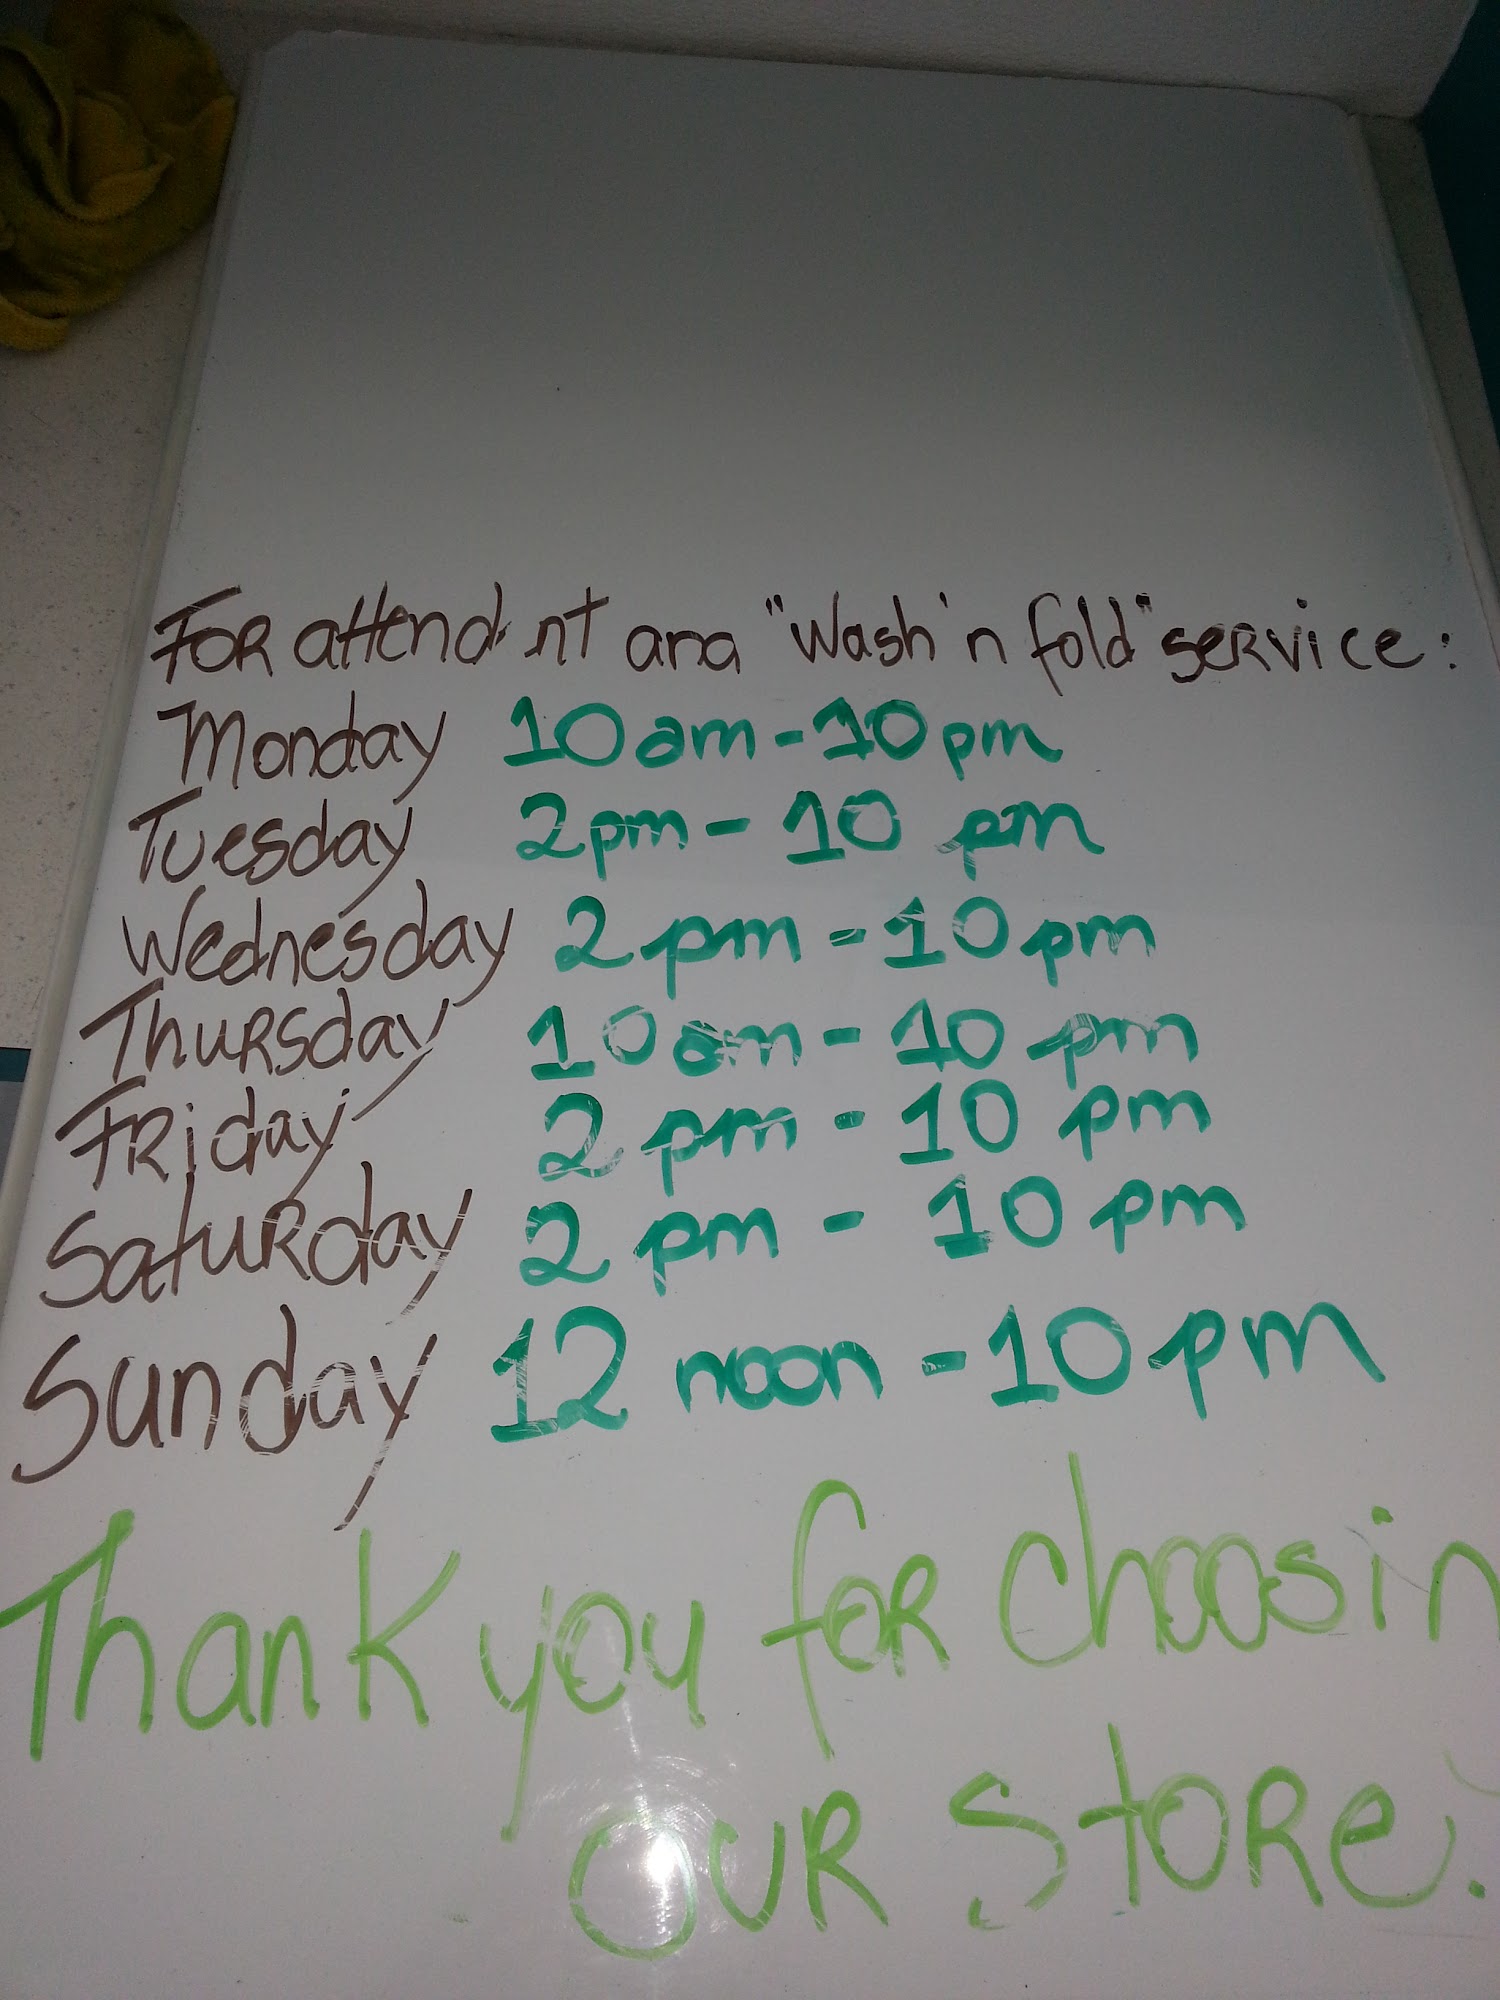 For attendnt and "Wash'n fold" service:
Monday 10am - 10pm
Tuesday 2pm - 10 pm
Wednesday 2 pm - 10pm
Thursday 10am - 10 pm
Friday 2 pm - 10 pm
Saturday 2 pm - 10 pm
Sunday 12 noon - 10pm
Thank you for choosin
our store.